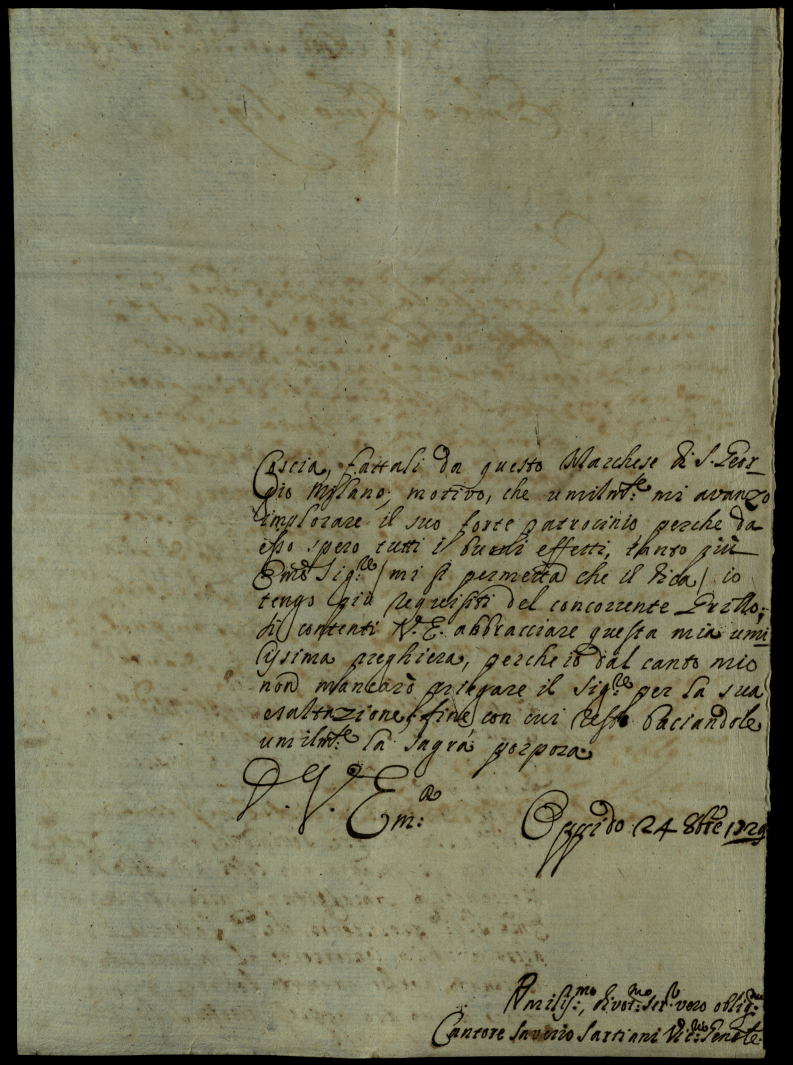 Coscia, fattali da questo Marchese di S. Geor-
gio Mylano; motivo, che umilmte: mi avanzo
implorare il suo forte patrocinio perche da
esso spero tutti il buoni effetti, tanto più
Emo Sigre (mi si permetta che il dica) io
tengo più requisiti del concorrente Grillo;
si contenti V. E. abbracciare questa mia umi-
lissima preghiera, perche io dal canto mio
non mancarò priegare il Sigre per la sua
esaltazione, fine con cui resto baciandole
umilmte: la sagra porpora
D. V. Ema:
Oppido 24 8bre 1729
Umiliss:mo, divot:mo ser.r vero oblig:mo
Cantore Saverio Sartiani Vic:rio Genle.